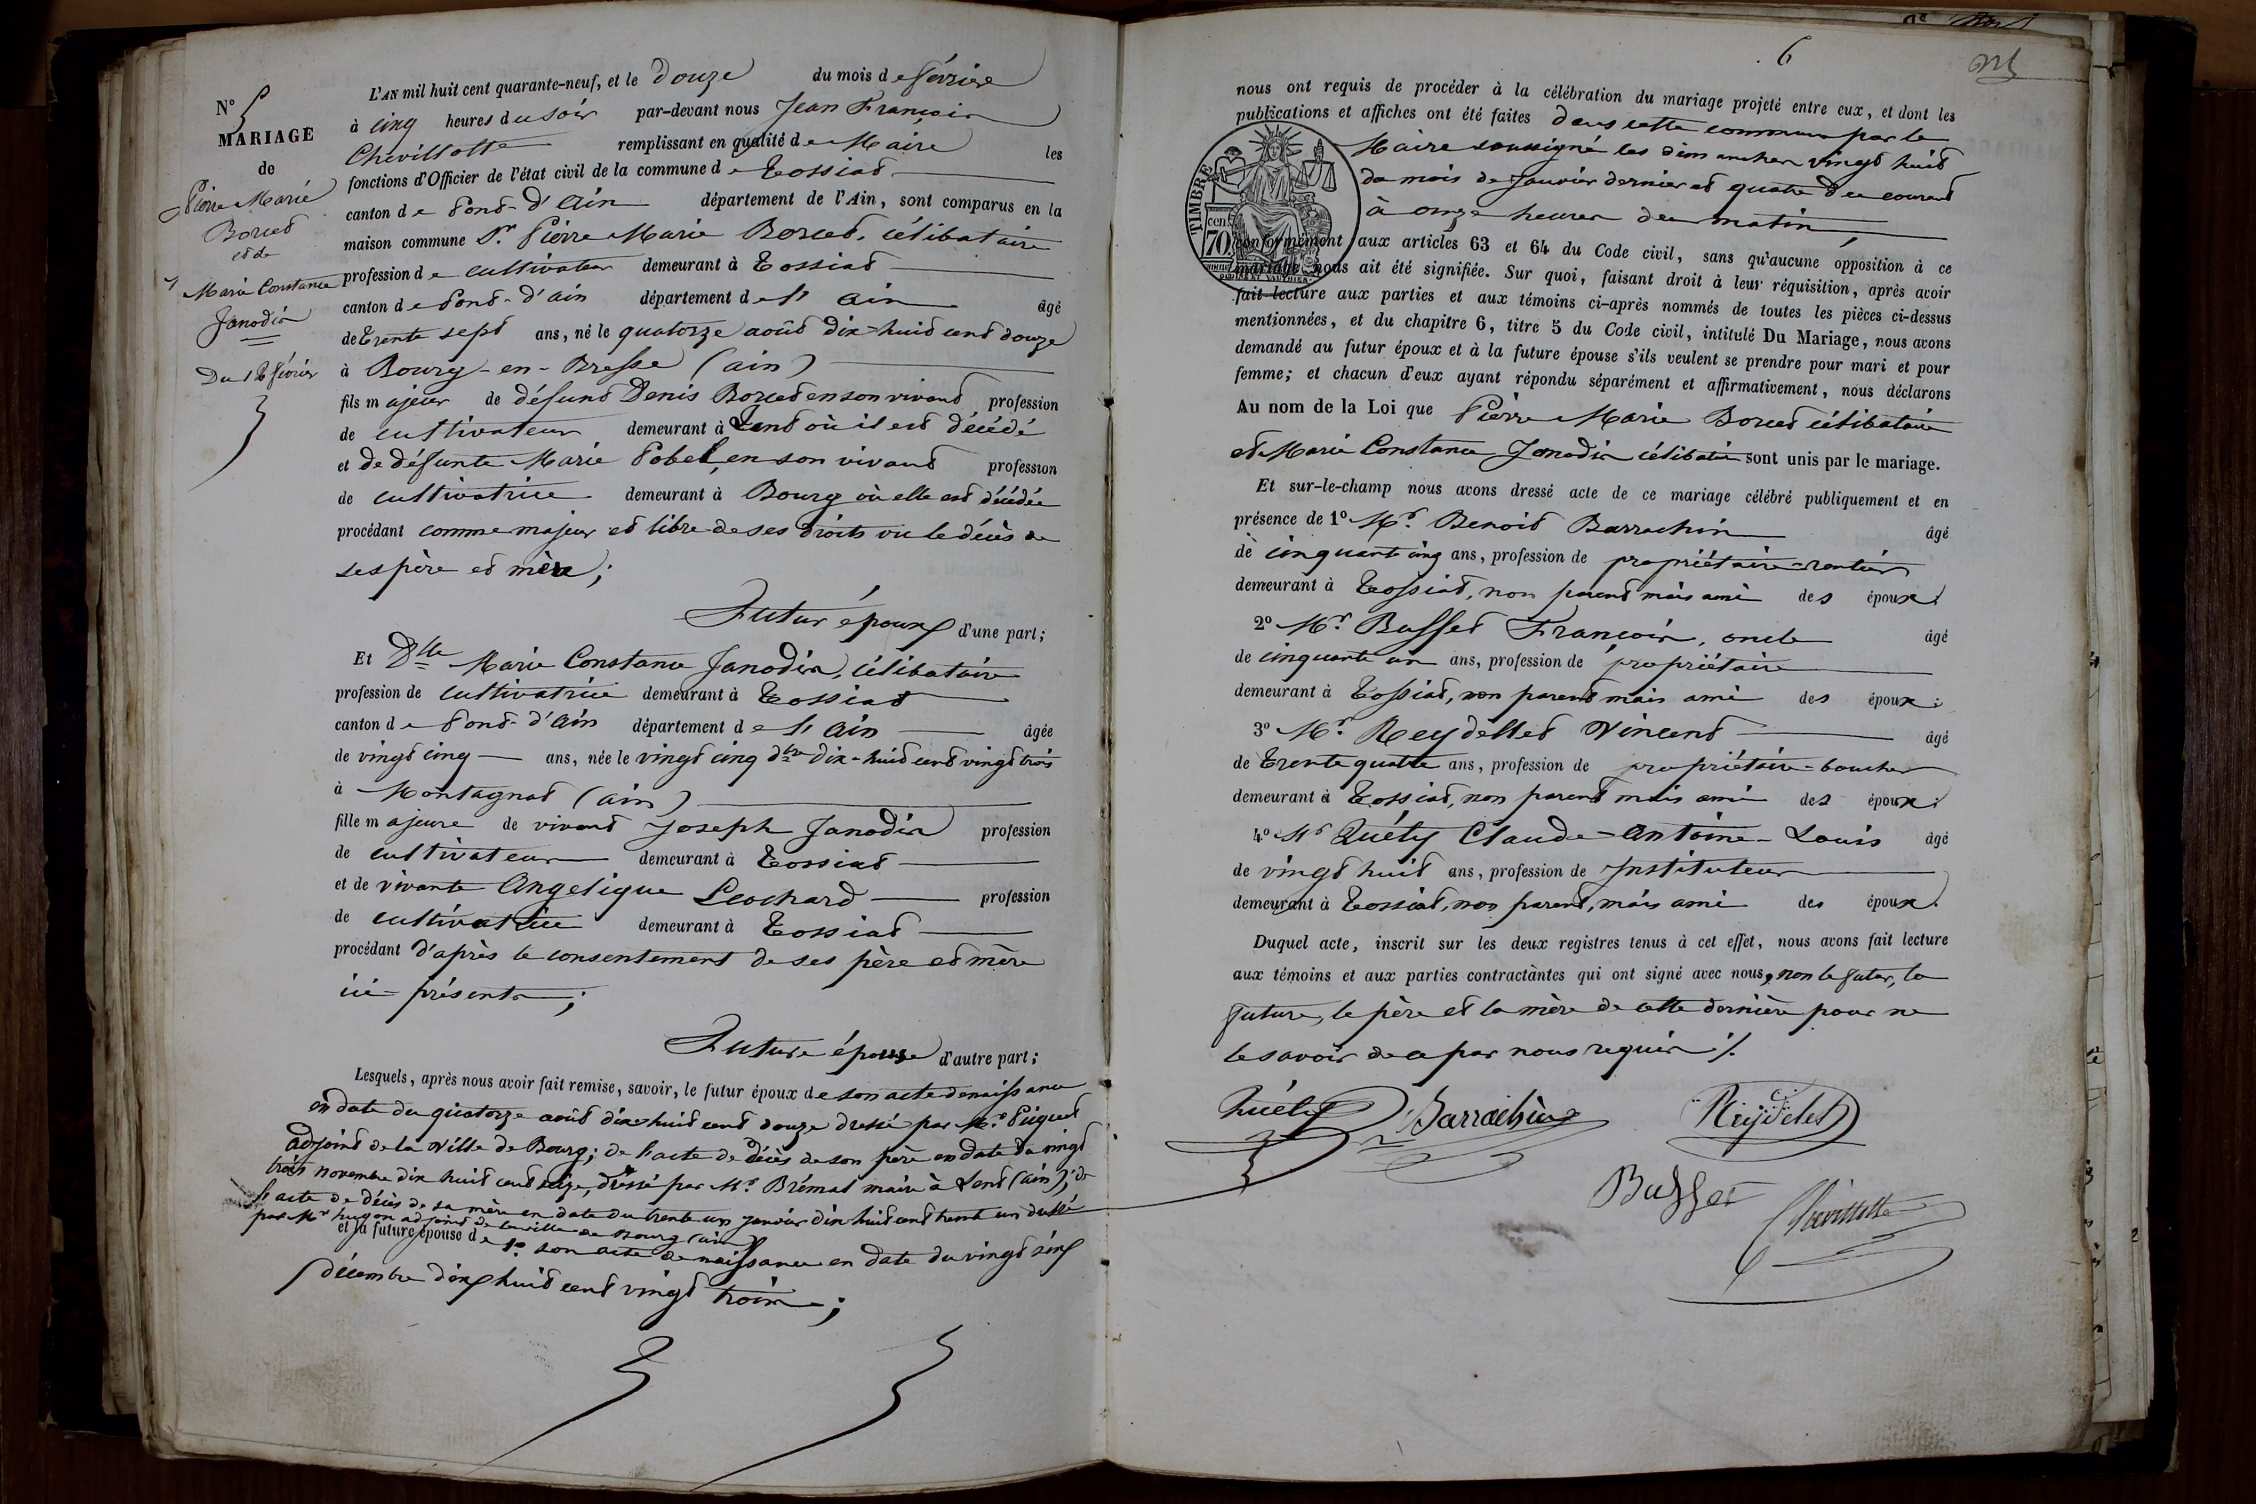 N° 5
MARIAGE
de
Pierre Marie
Borcet
et de
Marie Constance
Janodin
Du 12 février
L'AN mil huit cent quarante-neuf, et le douze du mois de février
à cinq heures du soir par-devant nous Jean François
Chevillotte remplissant en qualité de Maire les
fonctions d'Officier de l'état civil de la commune de Tossiat
canton de Pont-d'Ain département de l'Ain, sont comparus en la
maison commune Sr. Pierre Marie Borcet, célibataire
profession de cultivateur demeurant à Tossiat
canton de Pont-d'ain département de l'ain âgé
de trente sept ans, né le quatorze août dix-huit cent douze
à Bourg-en-Bresse (ain)
fils majeur de défunt Denis Borcet en son vivant profession
de cultivateur demeurant à Lent où il est décédé
et de défunte Marie Pobel, en son vivant profession
de cultivatrice demeurant à Bourg où elle est décédée
procédant comme majeur et libre de ses droits vu le décès de
ses père et mère;
Futur époux d'une part;
Et Dlle Marie Constance Janodin, célibataire
profession de cultivatrice demeurant à Tossiat
canton de Pont-d'ain département de l'ain âgée
de vingt cinq ans, née le vingt cinq dbre dix-huit cent vingt trois
à Montagnat (ain)
fille majeure de vivant Joseph Janodin profession
de cultivateur demeurant à Tossiat
et de vivante Angelique Leochard profession
de cultivatrice demeurant à Tossiat
procédant d'après le consentement de ses père et mère
ici présents;
Future épouse d'autre part;
Lesquels, après nous avoir fait remise, savoir, le futur époux de son acte de naissance
en date du quatorze août dix huit cent douze dressé par Mr. Piquet
adjoint de la ville de Bourg; de l'acte de décès de son père en date du vingt
trois novembre dix huit cent seize, dressé par Mr. Brémal maire à Lent (ain); de
l'acte de décès de sa mère en date du trente un janvier dix huit cent trente un dressé
par Mr hugon adjoint de la ville de Bourg (ain)
et la future épouse de 1° son acte de naissance en date du vingt cinq
décembre dix huit cent vingt trois;
6
nous ont requis de procéder à la célébration du mariage projeté entre eux, et dont les
publications et affiches ont été faites dans cette commune par le
Maire soussigné les dimanches vingt huit
du mois de Janvier dernier et quatre du courant
à onze heures du matin
TIMBRE
70
cent
conformément aux articles 63 et 64 du Code civil, sans qu'aucune opposition à ce
mariage nous ait été signifiée. Sur quoi, faisant droit à leur réquisition, après avoir
fait lecture aux parties et aux témoins ci-après nommés de toutes les pièces ci-dessus
mentionnées, et du chapitre 6, titre 5 du Code civil, intitulé Du Mariage, nous avons
demandé au futur époux et à la future épouse s'ils veulent se prendre pour mari et pour
femme; et chacun d'eux ayant répondu séparément et affirmativement, nous déclarons
Au nom de la Loi que Pierre Marie Borcet célibataire
et Marie Constance Janodin célibataire sont unis par le mariage.
Et sur-le-champ nous avons dressé acte de ce mariage célébré publiquement et en
présence de 1° Mr. Benoit Barrachin âgé
de cinquante cinq ans, profession de propriétaire-rentier
demeurant à Tossiat, non parent mais ami des époux;
2° Mr. Buffet François, oncle âgé
de cinquante un ans, profession de propriétaire
demeurant à Tossiat, non parent mais ami des époux;
3° Mr. Reydellet Vincent âgé
de trente quatre ans, profession de propriétaire-boucher
demeurant à Tossiat, non parent mais ami des époux;
4° Mr Quély Claude-Antoine-Louis âgé
de vingt huit ans, profession de Instituteur
demeurant à Tossiat, non parent, mais ami des époux.
Duquel acte, inscrit sur les deux registres tenus à cet effet, nous avons fait lecture
aux témoins et aux parties contractantes qui ont signé avec nous, non le futur, la
future, le père et la mère de cette dernière pour ne
le savoir de ce par nous requis ./.
Quély Barrachin Reydelet
Buffet Chevillotte